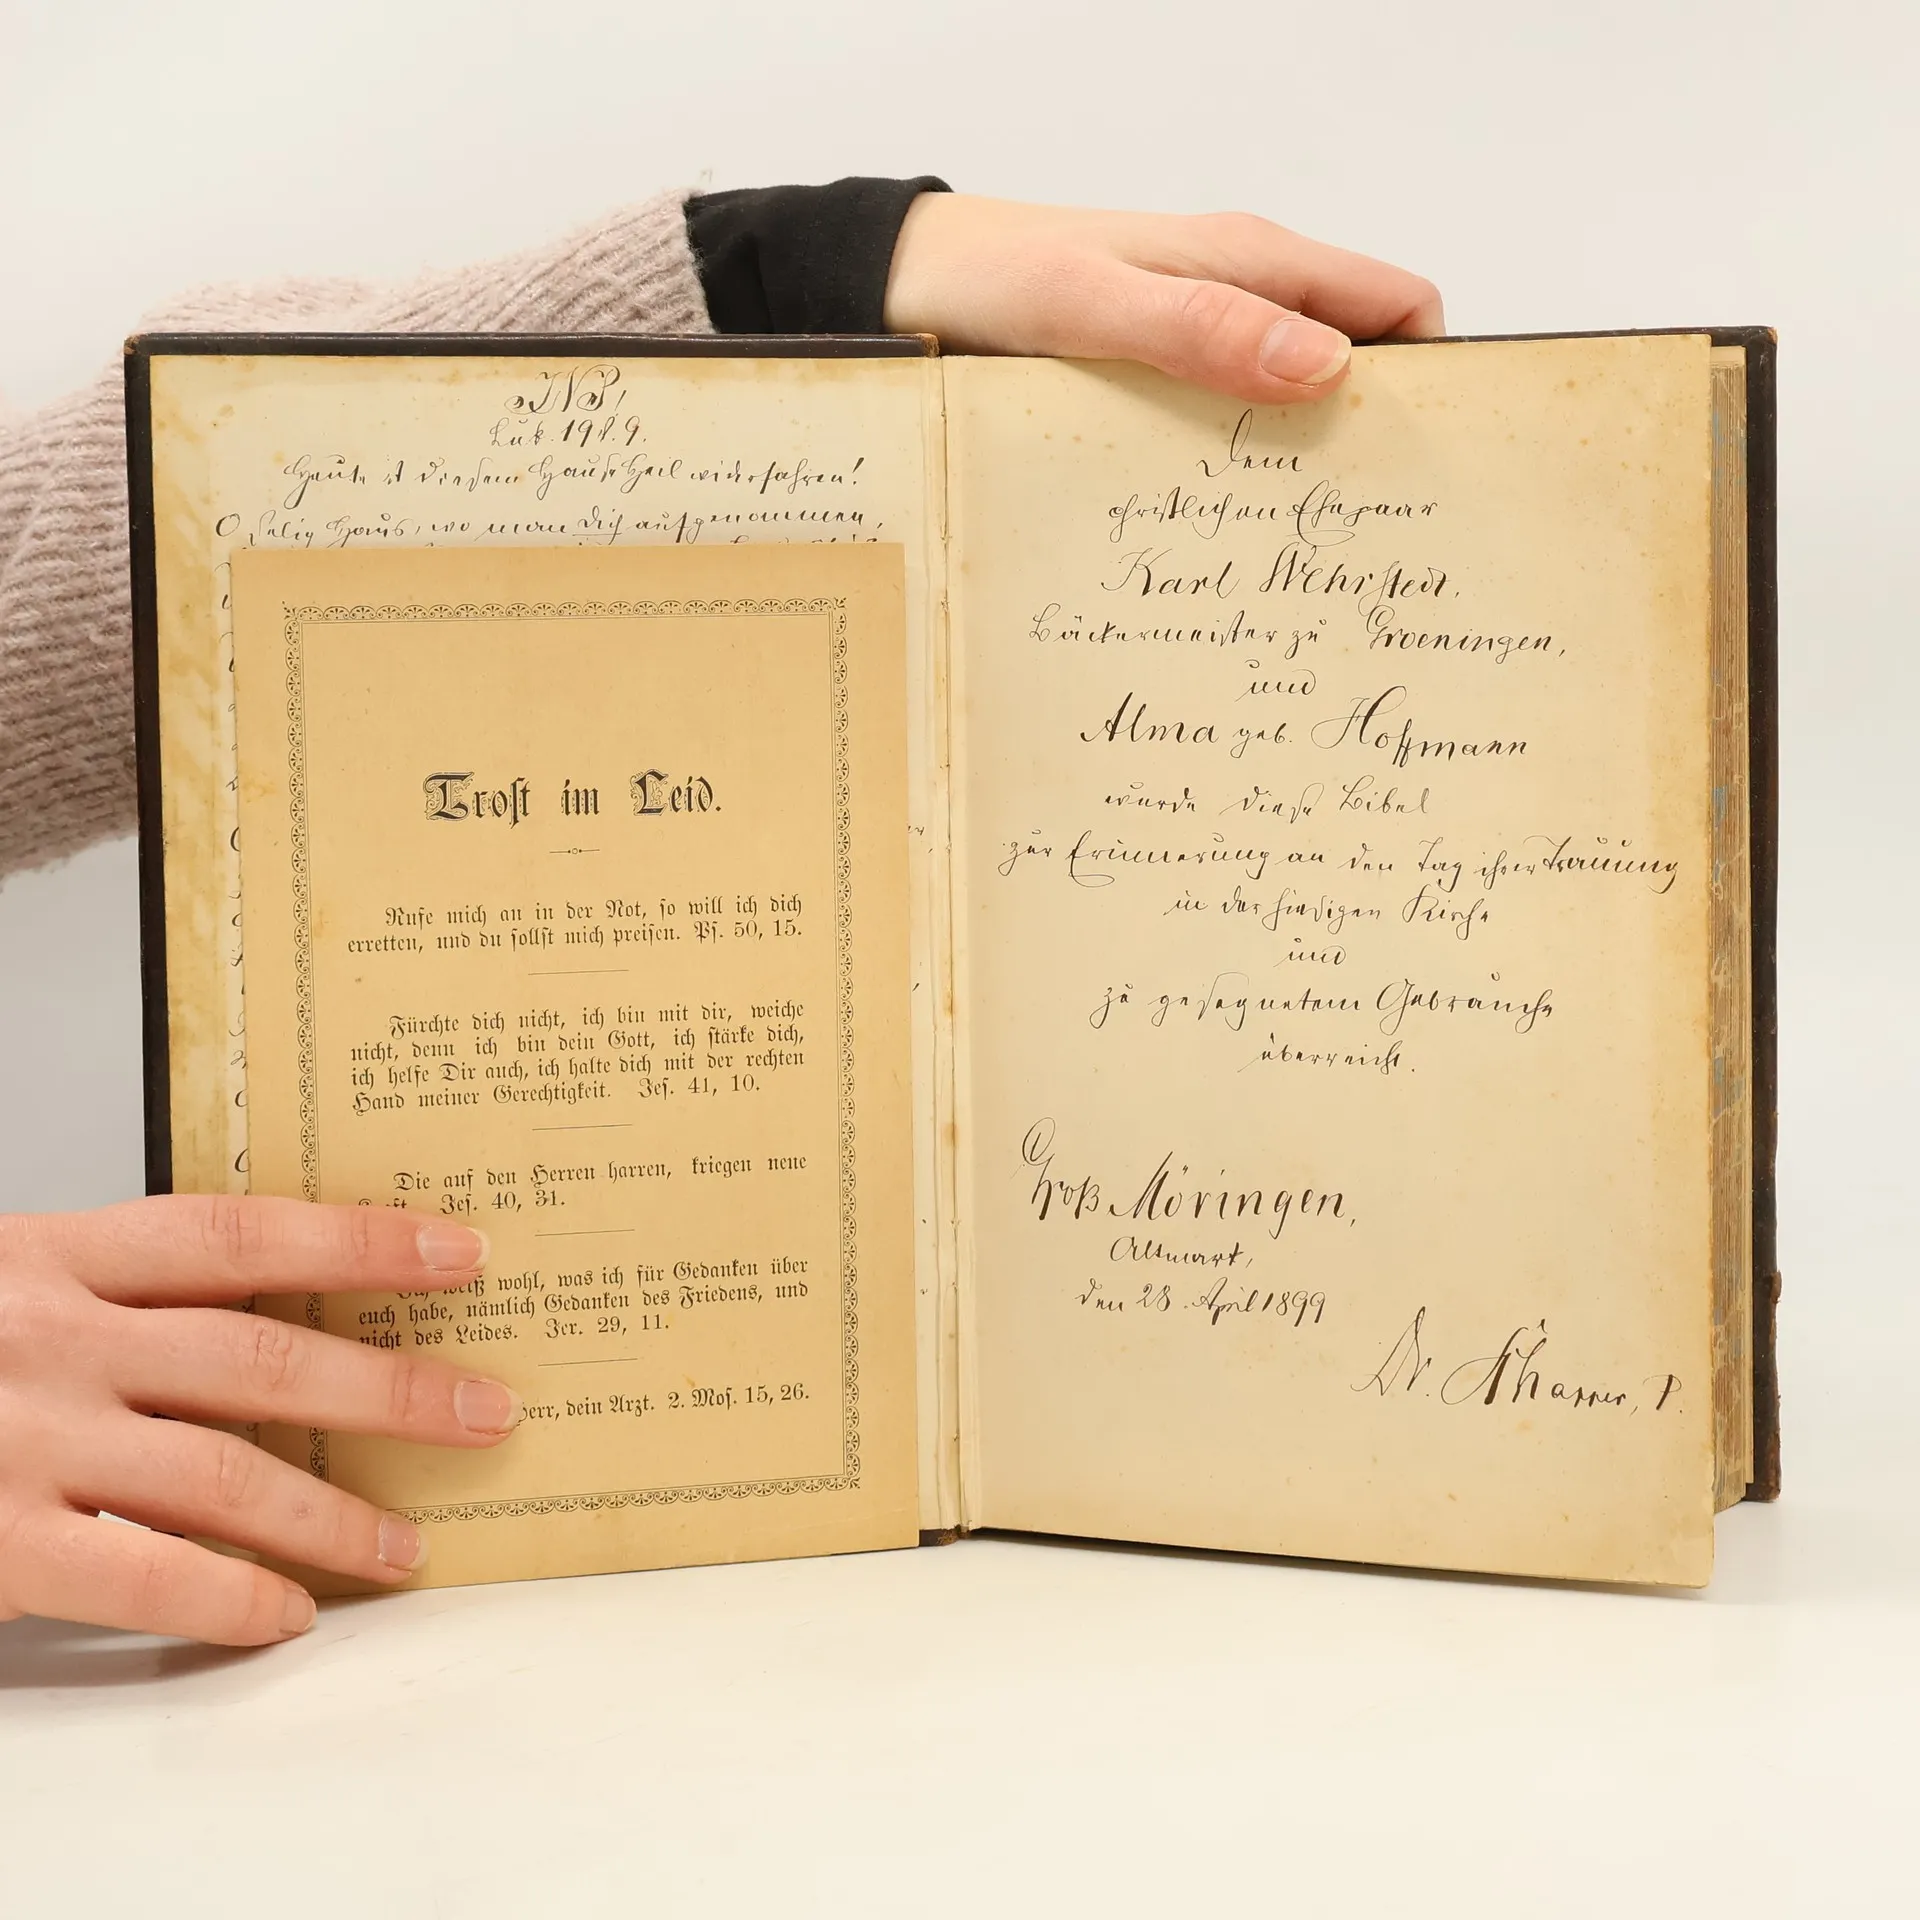 Luk. 19 V. 9.
Heute ist diesem Hause Heil widerfahren!
O selig Haus, wo man Dich aufgenommen,
Trost im Leid.
Rufe mich an in der Not, so will ich dich
erretten, und du sollst mich preisen. Ps. 50, 15.
Fürchte dich nicht, ich bin mit dir, weiche
nicht, denn ich bin dein Gott, ich stärke dich,
ich helfe Dir auch, ich halte dich mit der rechten
Hand meiner Gerechtigkeit. Jes. 41, 10.
Die auf den Herren harren, kriegen neue
Jes. 40, 31.
wohl, was ich für Gedanken über
euch habe, nämlich Gedanken des Friedens, und
nicht des Leides. Jer. 29, 11.
Herr, dein Arzt. 2. Mos. 15, 26.
Dem
christlichen Ehepaar
Karl Wehrstedt,
Bäckermeister zu Groeningen,
und
Alma geb. Hoffmann
wurde diese Bibel
zur Erinnerung an den Tag ihrer Trauung
in der hiesigen Kirche
und
zu gesegnetem Gebrauche
überreicht.
Groß Möringen,
Altmark,
den 28. April 1899
Dr.